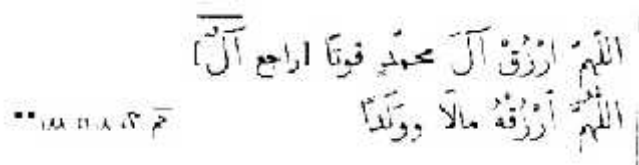 اللّهمّ ارْزُقْ آلَ محمّدٍ قوتًا [راجع آلٌ]
اللّهُمَّ ٱرْزُقْهُ مالًا وولَدًا حم